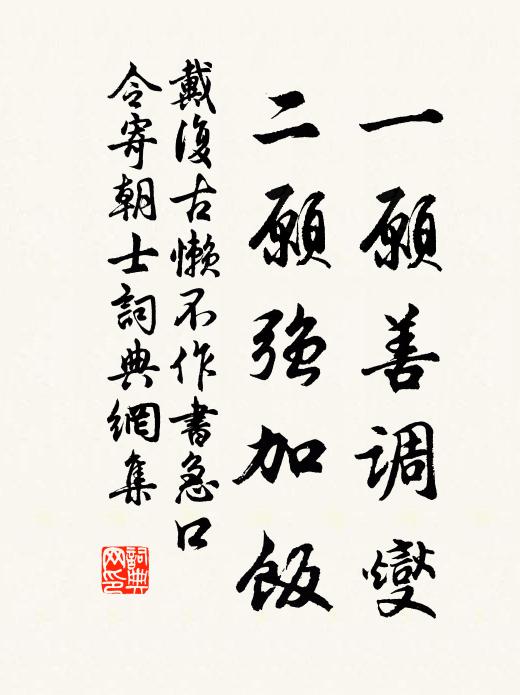 一願善調燮
二願強加飯
戴復古懶不作書急口
令寄朝士詞典網集
詞典网印